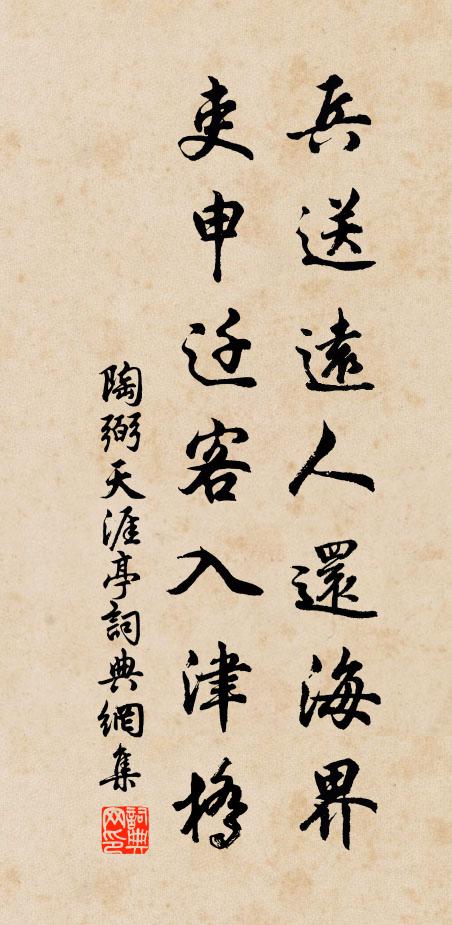 兵送遠人還海界
吏申迁客入津橋
陶弼天涯亭詞典網集
詞典网印